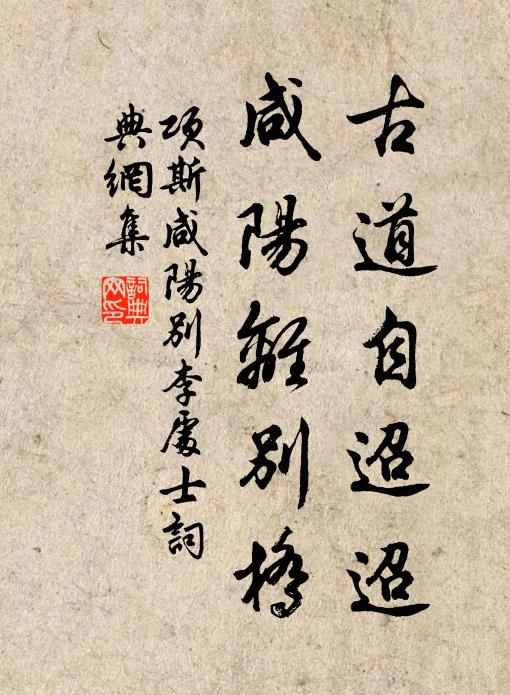 古道自迢迢
咸陽離別橋
項斯咸陽別李處士詞
典網集
詞典
网印